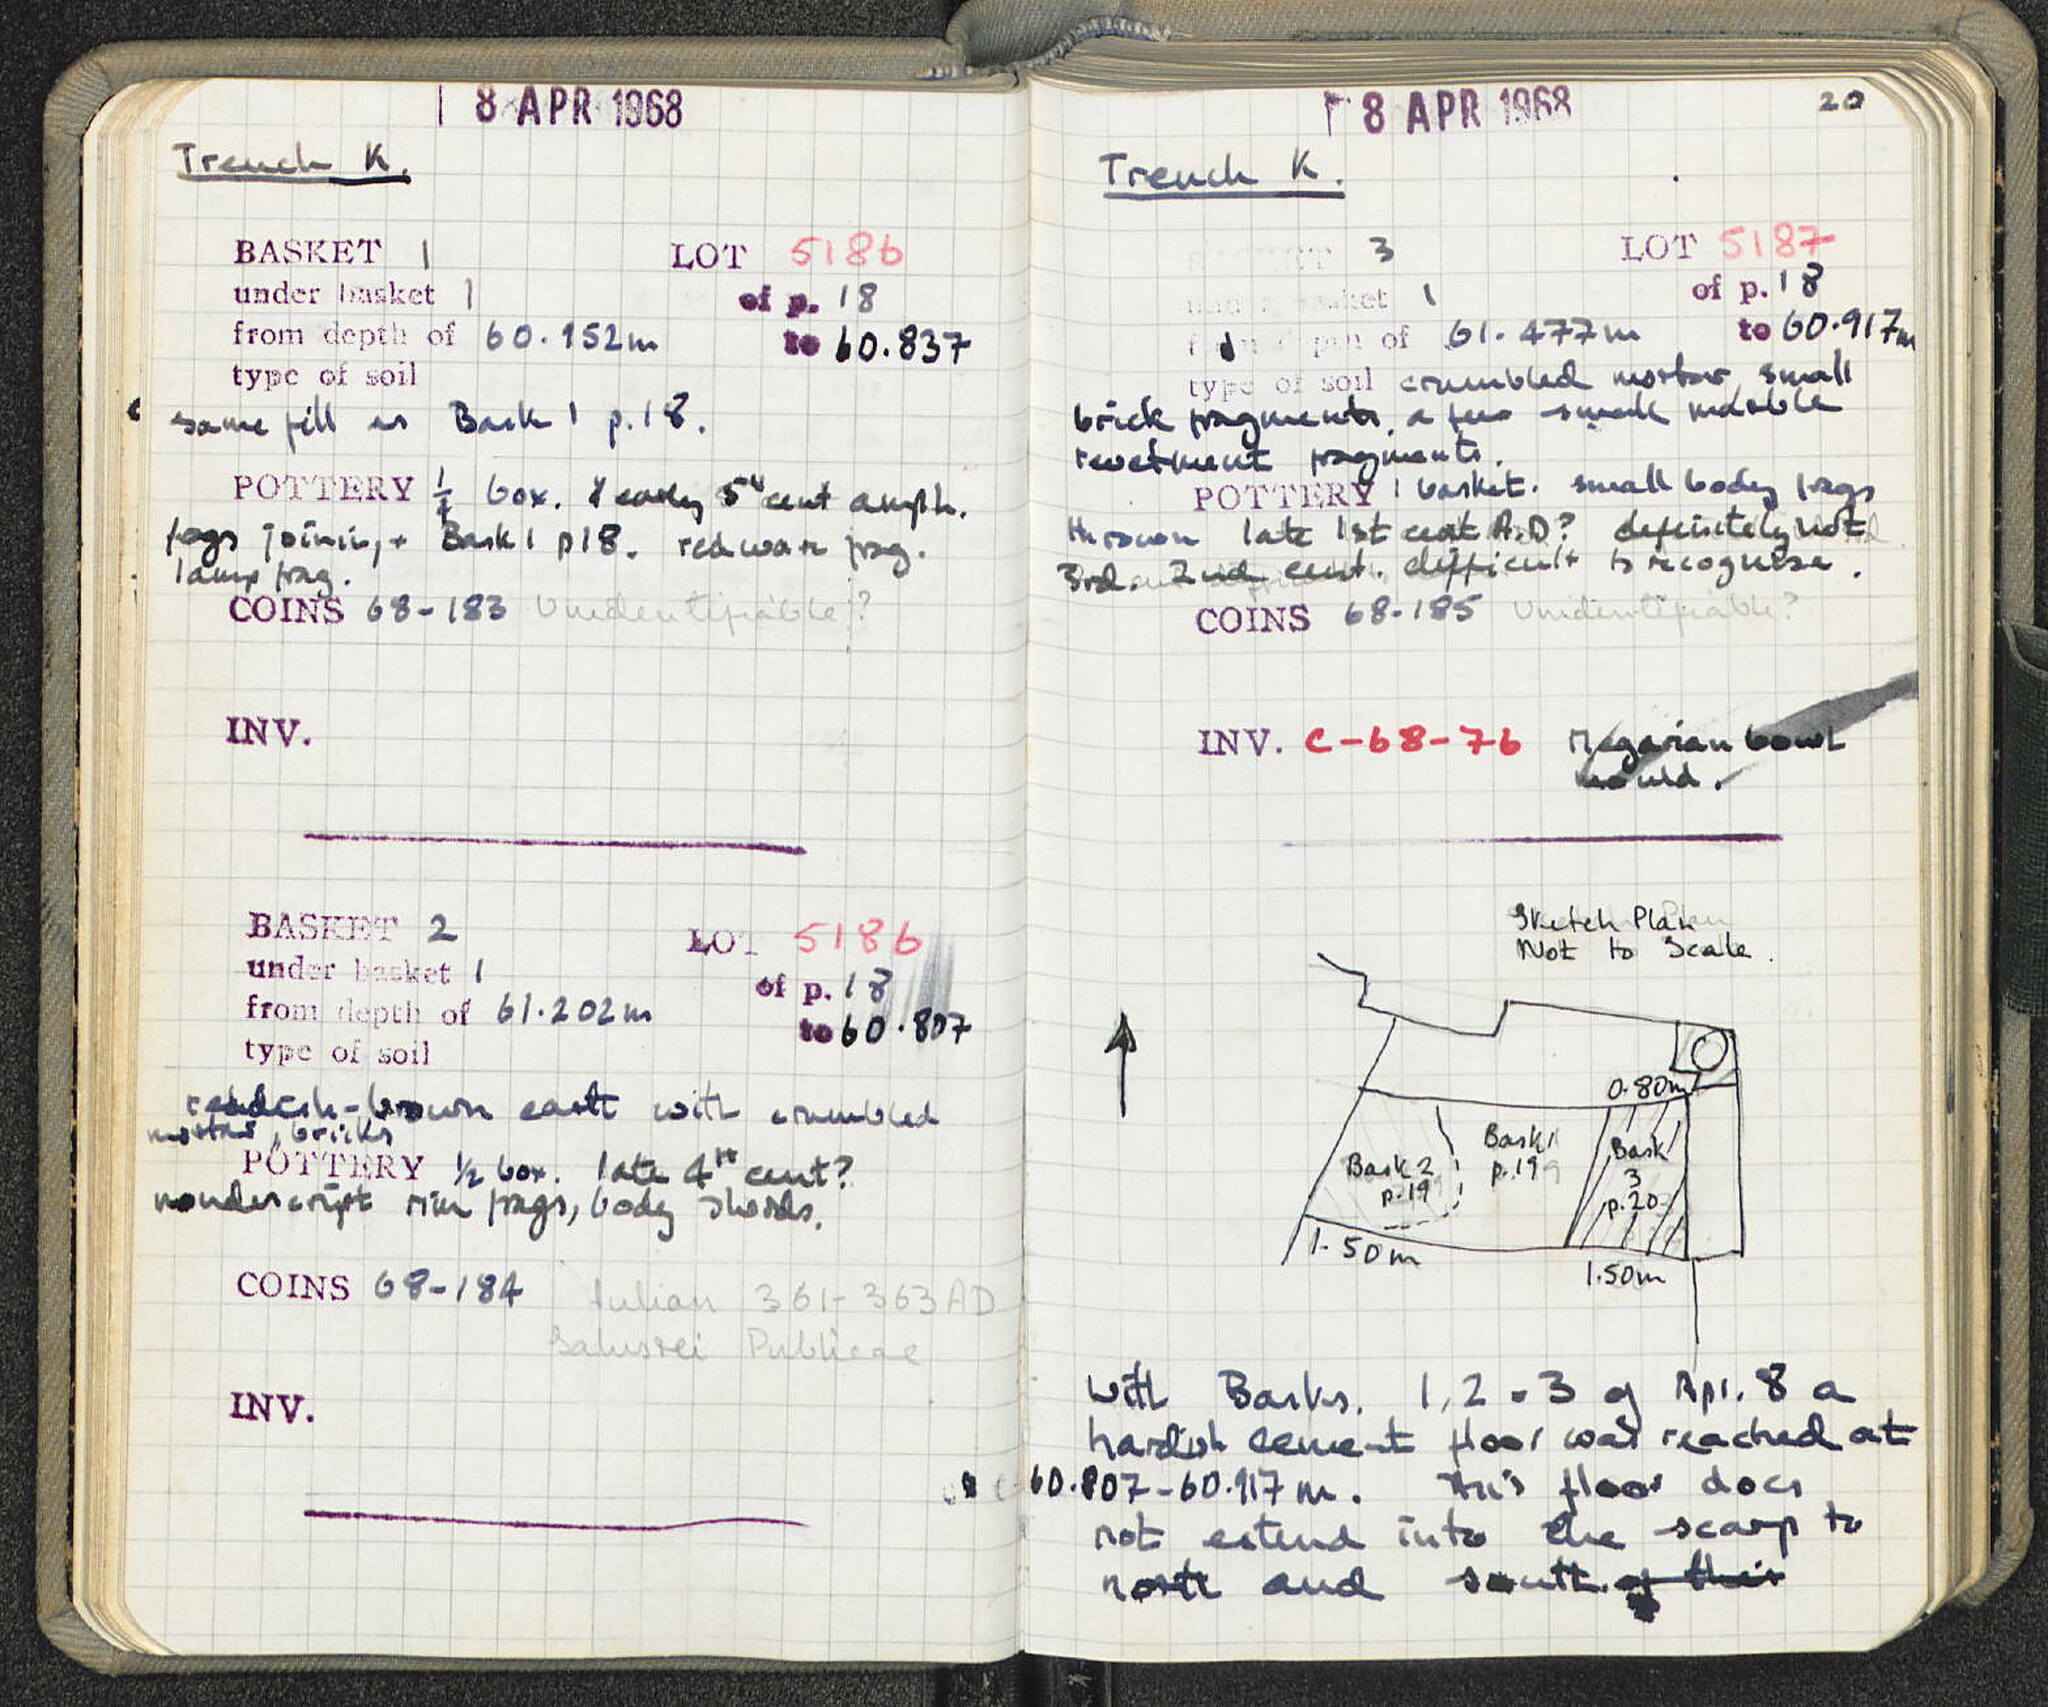 8 APR 1968
Trench K.
BASKET 1 LOT 5186
under basket 1 of p. 18
from depth of 60.952m to 60.837
type of soil
same fill as Bask 1 p.18.
POTTERY box. early 5th cent amph.
frags joining Bask 1 p18. redware frag.
lamp frag.
COINS 68-183 Unidentifiable?
INV.
BASKET 2 LOT 5186
under basket 1 of p. 18
from depth of 61.202m to 60.807
type of soil
reddish-brown earth with crumbled
mortar, bricks
POTTERY 1/2 box. late 4th cent?
nondescript rim frags, body sherds.
COINS 68-184 Julian 361-363 AD
Publicae
INV.
8 APR 1968
20
Trench K.
BASKET 3 LOT 5187
under basket 1 of p. 18
from depth of 61.477m to 60.917m
type of soil crumbled mortar, small
brick fragments, a few small marble
revetment fragments.
POTTERY 1 basket. small body frags
thrown late 1st cent A.D? definitely not
3rd. 2nd cent. difficult to recognise.
COINS 68-185 Unidentifiable?
INV. C-68-76 Megarian bowl
mould.
Sketch Plan
Not to Scale.
0.80m
Bask 2
p.19
Bask 1
p.19
Bask
3
p.20
1.50m
1.50m
With Basks. 1, 2 + 3 of Apr. 8 a
hardish cement floor was reached at
60.807-60.917m. This floor does
not extend into the scarp to
north and south. of this